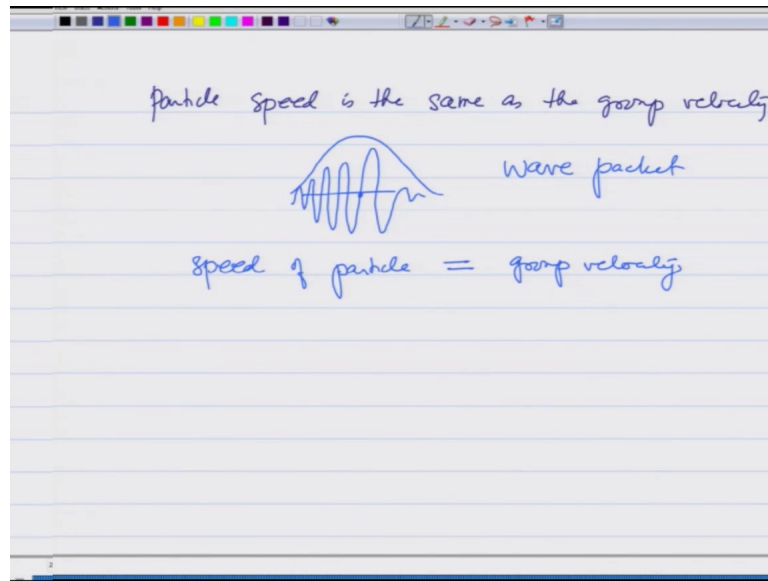 Particle speed is the same as the group velocity
wave packet
speed of particle = group velocity